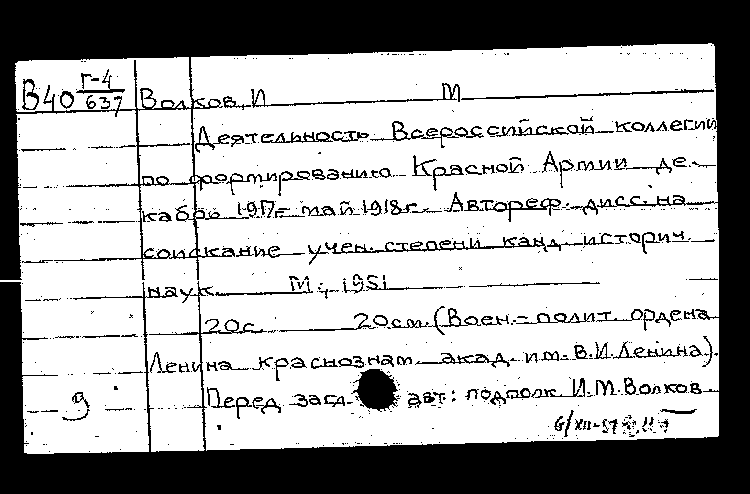 В40 Г-4/637 Волков, И М
Деятельность Всероссийской коллегии
по формированию Красной Армии де-
кабрь 1917г- май 1918г. Автореф. дисс. на
соискание учен. степени канд. историч.
наук. М., 1951
20с. 20см. (Воен.-полит. ордена
Ленина краснознам. акад. им. В.И.Ленина).
9 Перед загл. авт: подполк И.М.Волков.
6/XII-51